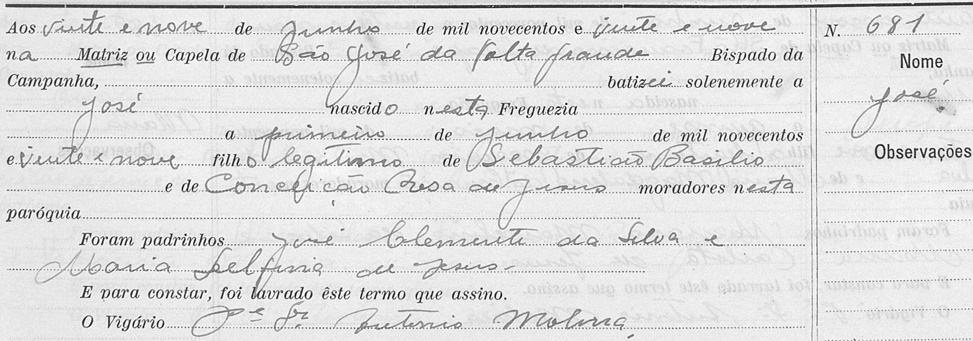 Aos vinte e nove de Junho de mil novecentos e vinte e nove
na Matriz ou Capela de São José da Volta Grande Bispado da
Campanha, batizei solenemente a
José nascido nesta Freguezia
a primeiro de Junho de mil novecentos
e vinte e nove filho legitimo de Sebastião Basilio
e de Conceição Rosa de Jesus moradores nesta
paróquia
Foram padrinhos José Clemente da Silva e
Maria Delfina de Jesus
E para constar, foi lavrado êste termo que assino.
O Vigário Pe Antonio
N. 681
Nome
José
Observações